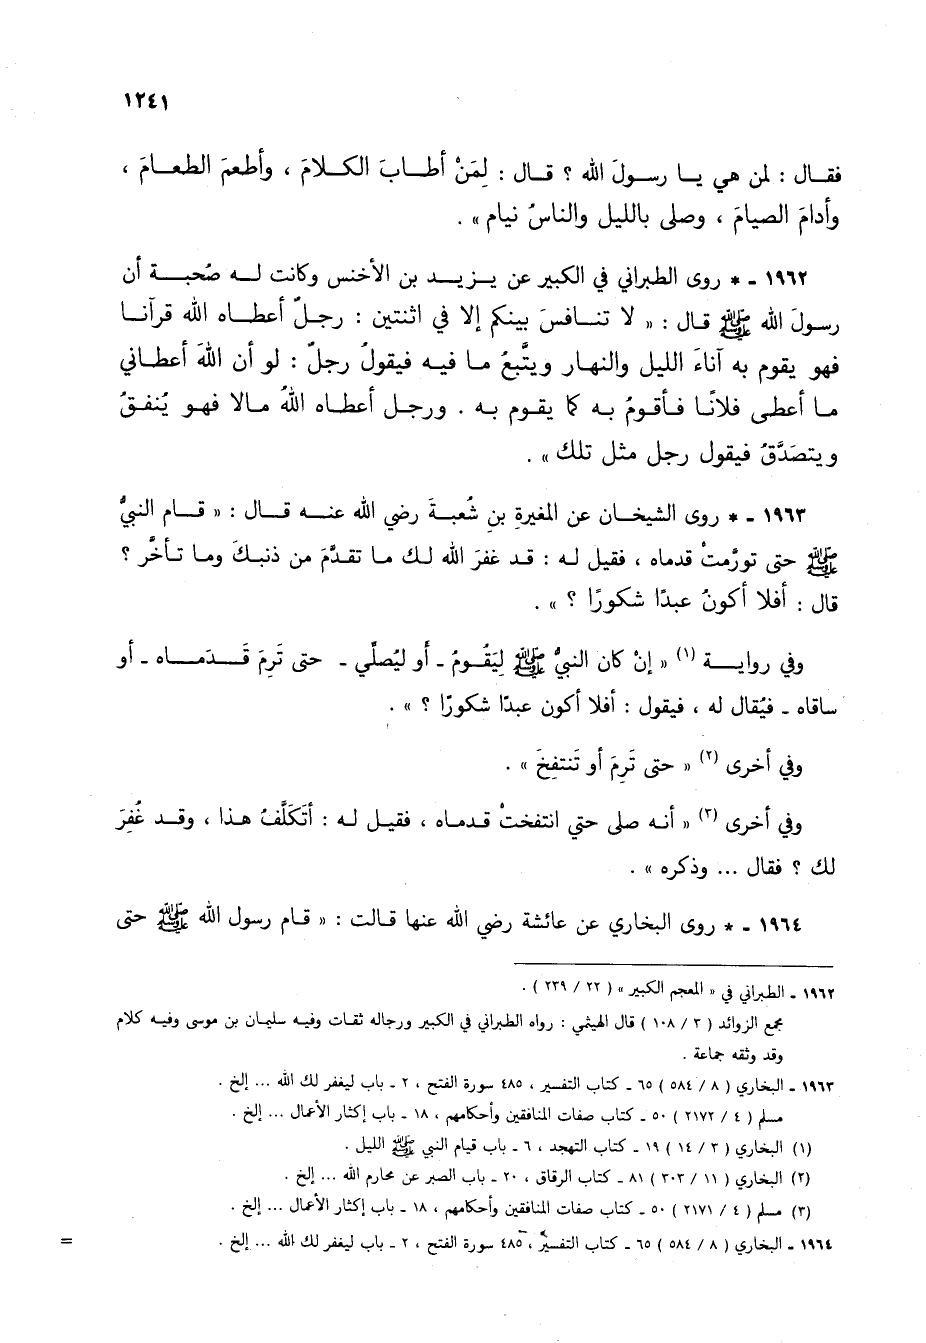 ١٢٤١
فقال : لمن هي يا رسولَ الله ؟ قال : لِمَنْ أطابَ الكلامَ ، وأطعمَ الطعامَ ،
وأدامَ الصيامَ ، وصلى بالليل والناسُ نيام » .
١٩٦٢ - * روى الطبراني في الكبير عن يزيد بن الأخنس وكانت له صُحبة أن
رسولَ الله ﷺ قال : « لا تنافسَ بينكم إلا في اثنتين : رجلٌ أعطاه الله قرآنا
فهو يقوم به آناءَ الليل والنهار ويتَّبعُ ما فيه فيقولُ رجلٌ : لو أن اللهَ أعطاني
ما أعطى فلانًا فأقومُ به كما يقوم به . ورجل أعطاه اللهُ مالا فهو يُنفقُ
ويتصَدَّقُ فيقول رجل مثل تلك » .
١٩٦٣ - * روى الشيخان عن المغيرةِ بنِ شُعبةَ رضي الله عنه قال : « قام النبيُّ
ﷺ حتى تورَّمتْ قدماه ، فقيل له : قد غفرَ الله لك ما تقدَّمَ من ذنبكَ وما تأخَّر ؟
قال : أفلا أكونُ عبدًا شكورًا ؟ » .
وفي رواية (١) « إنْ كان النبيُّ ﷺ لِيَقُومُ - أو ليُصلِّي - حتى تَرِمَ قَدَماه - أو
ساقاه - فيُقال له ، فيقول : أفلا أكون عبدًا شكورًا ؟ » .
وفي أخرى (٢) « حتى تَرِمَ أو تَنتفِخَ » .
وفي أخرى (٣) « أنه صلى حتى انتفختْ قدماه ، فقيل له : أتَكَلَّفُ هذا ، وقد غُفِرَ
لك ؟ فقال ... وذكره » .
١٩٦٤ - * روى البخاري عن عائشة رضي الله عنها قالت : « قام رسول الله ﷺ حتى
١٩٦٢ - الطبراني في « المعجم الكبير » ( ٢٢ / ٢٣٩ ) .
مجمع الزوائد ( ٣ / ١٠٨ ) قال الهيثمي : رواه الطبراني في الكبير ورجاله ثقات وفيه سليمان بن موسى وفيه كلام
وقد وثقه جماعة .
١٩٦٣ - البخاري ( ٨ / ٥٨٤ ) ٦٥ - كتاب التفسير ، ٤٨٥ سورة الفتح ، ٢ - باب ليغفر لك الله ... إلخ .
مسلم ( ٤ / ٢١٧٢ ) ٥٠ - كتاب صفات المنافقين وأحكامهم ، ١٨ - باب إكثار الأعمال ... إلخ .
(١) البخاري ( ٣ / ١٤ ) ١٩ - كتاب التهجد ، ٦ - باب قيام النبي ﷺ الليل .
(٢) البخاري ( ١١ / ٣٠٣ ) ٨١ - كتاب الرقاق ، ٢٠ - باب الصبر عن محارم الله ... إلخ .
(٣) مسلم ( ٤ / ٢١٧١ ) ٥٠ - كتاب صفات المنافقين وأحكامهم ، ١٨ - باب إكثار الأعمال ... إلخ .
١٩٦٤ - البخاري ( ٨ / ٥٨٤ ) ٦٥ - كتاب التفسير ، ٤٨٥ سورة الفتح ، ٢ - باب ليغفر لك الله ... إلخ . =